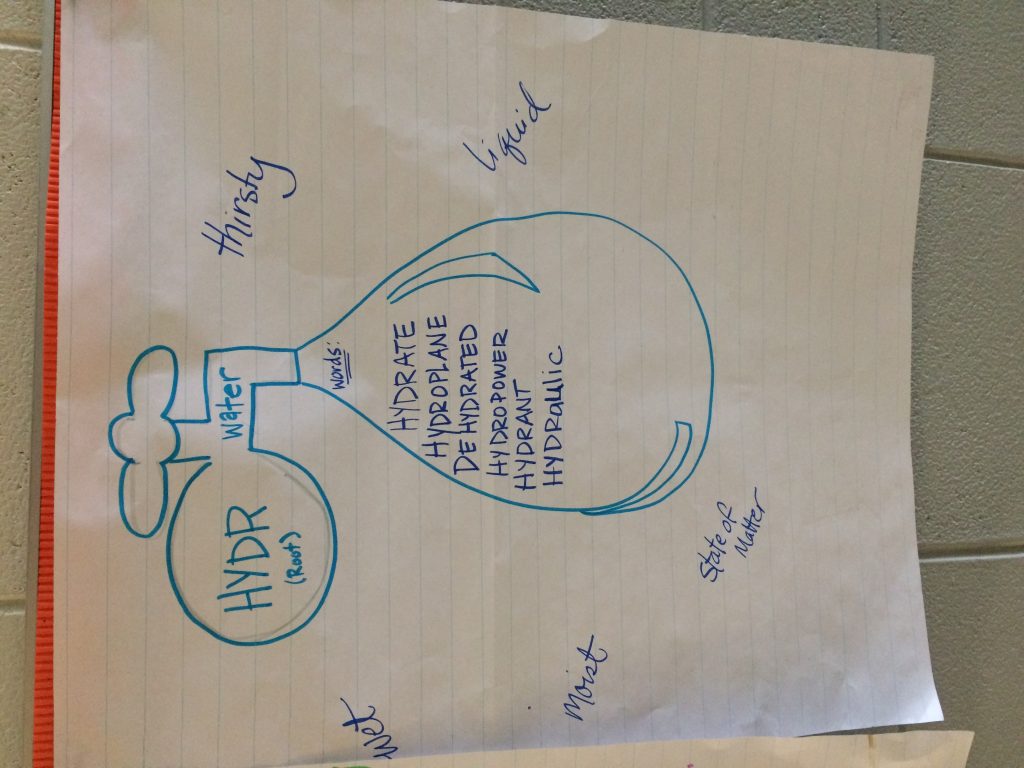 HYDR
(Root)
water
thirsty
wet
words:
HYDRATE
HYDROPLANE
DEHYDRATED
HYDROPOWER
HYDRANT
HYDRauLic
Liquid
Moist
State of
Matter